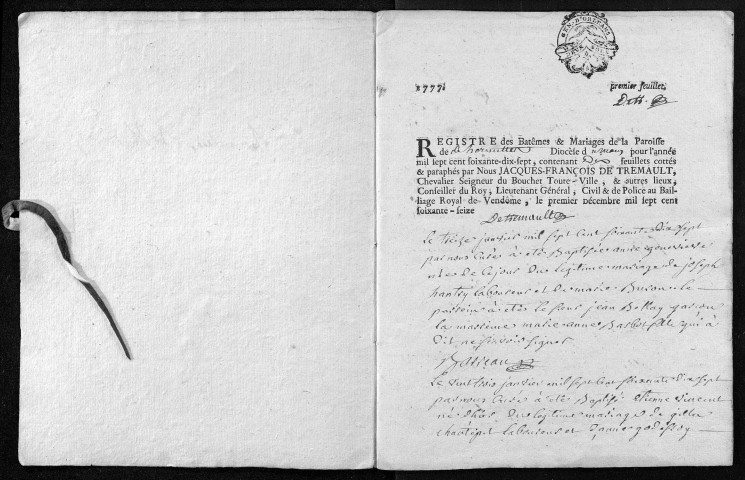 GEN. D'ORLEANS
1777.
premier feuillet.
Dett.
REGISTRE des Batêmes & Mariages de la Paroisse
de Diocèse d pour l'année
mil sept cent soixante-dix-sept, contenant feuillets cottés
& paraphés par Nous JACQUES-FRANÇOIS DE TREMAULT,
Chevalier Seigneur du Bouchet Toure-Ville, & autres lieux,
Conseiller du Roy, Lieutenant Général, Civil & de Police au Bail-
liage Royal de Vendôme, le premier Décembre mil sept cent
soixante-seize
Detremault
Le treize janvier mil sept cent soixante dix sept
par nous curé a été Baptisée anne genevieve
née de ce jour du legitime mariage de joseph
laboureur et de marie le
parein a été le sieur jean garcon
la mareine marie anne fille qui a
dit ne sçavoir signer
Le vint trois janvier mil sept cent soixante dix sept
par nous curé a été Baptisé Etienne vincent
né d'hier du legitime mariage de gilles
laboureur et d'anne godefroy